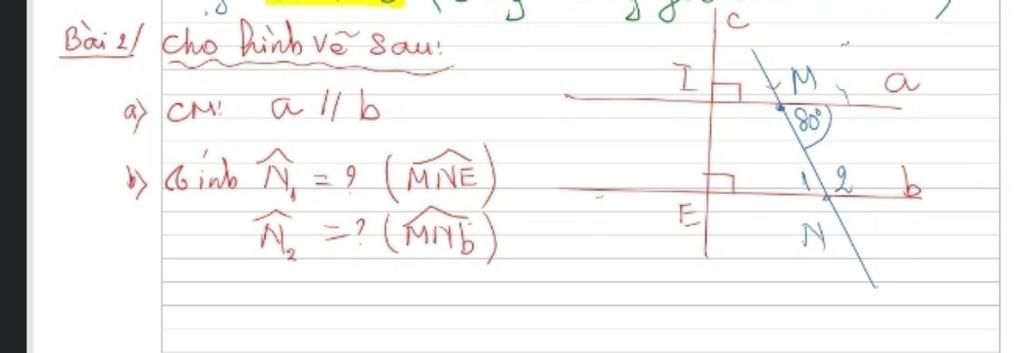 Bài 2/ Cho hình vẽ sau:
a) CM: a // b
b) Tính N̂₁ = ? (M̂NE)
N̂₂ = ? (M̂Nb)
C
I
M
a
80°
1 2
b
E
N